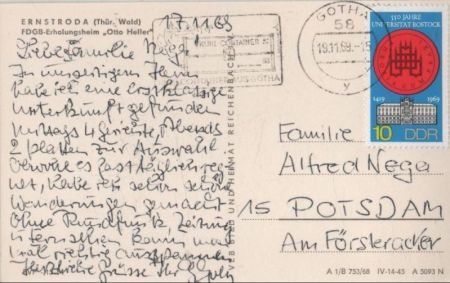 ERNSTRODA (Thür. Wald)
FDGB-Erholungsheim „Otto Heller"
17.11.69
Liebe Familie Nega!
In unserem Heim
habe ich eine erstklassige
Unterkunft gefunden
Mittags 4 Gerichte, Abends
2 Platten zur Auswahl
Obwohl es fast täglich reg-
net, habe ich schon schöne
Wanderungen gemacht
Ohne Rundfunk, Zeitung
u Fernsehen kann man
mal richtig ausspannen
Herzliche Grüsse Ihr
VEB BILD UND HEIMAT REICHENBACH
CONTAINER
GOTHA
GOTHA
58
19.11.69.-15
y
550 JAHRE
UNIVERSITÄT ROSTOCK
1419 1969
10 DDR
Familie
Alfred Nega
15 POTSDAM
Am Försteracker
A 1/B 753/68 IV-14-45 A 5093 N